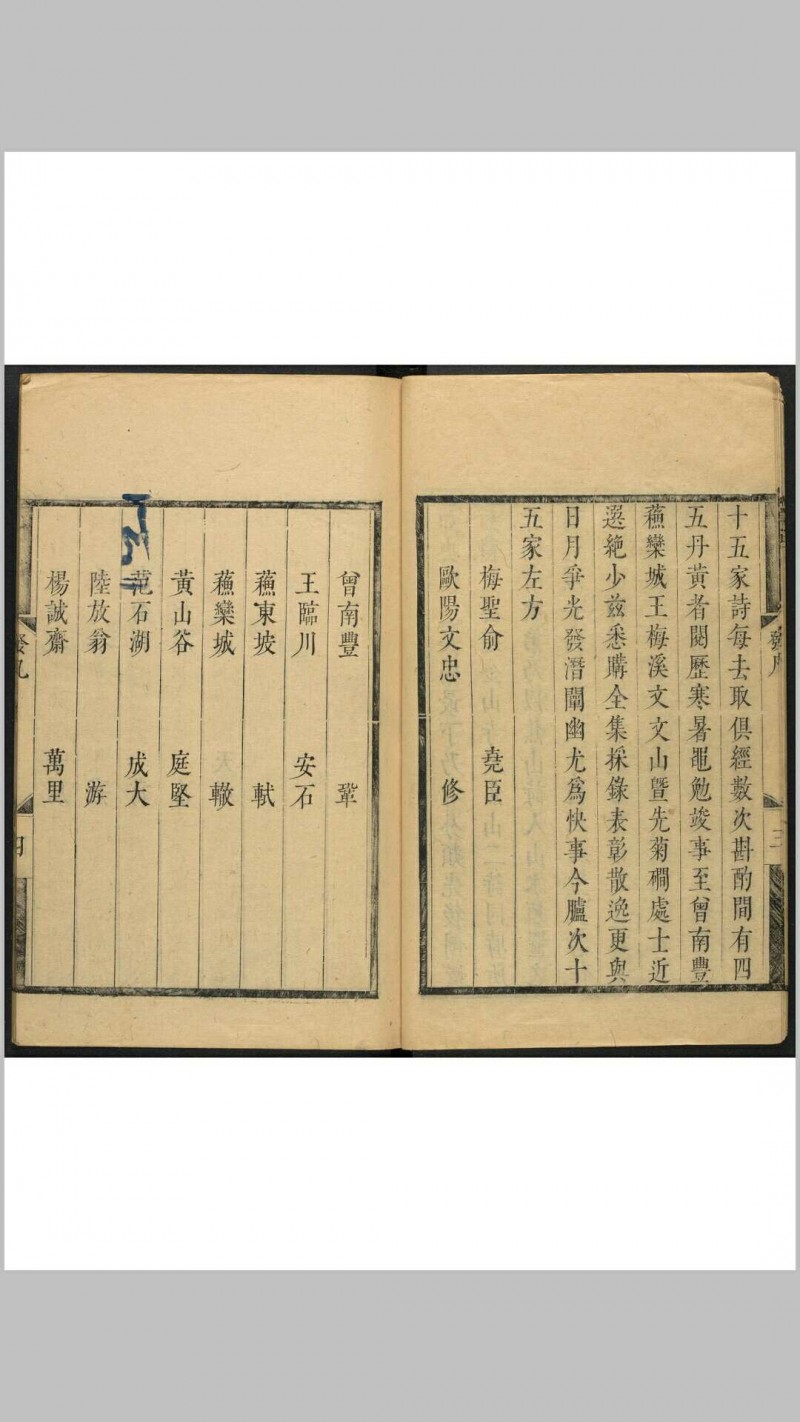 十五家詩每去取俱經數次斟酌間有四
五丹黃者閱歷寒暑黽勉竣事至曾南豐
蘓欒城王梅溪文文山曁先菊磵處士近
選絶少兹悉購全集採錄表彰散逸更與
日月爭光發潛闡幽尤爲快事今臚次十
五家左方
梅聖俞 堯臣
歐陽文忠 修
曾南豐 鞏
王臨川 安石
蘓東坡 軾
蘓欒城 轍
黃山谷 庭堅
范石湖 成大
陸放翁 游
楊誠齋 萬里